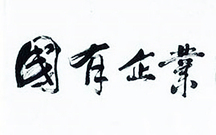 國有企業